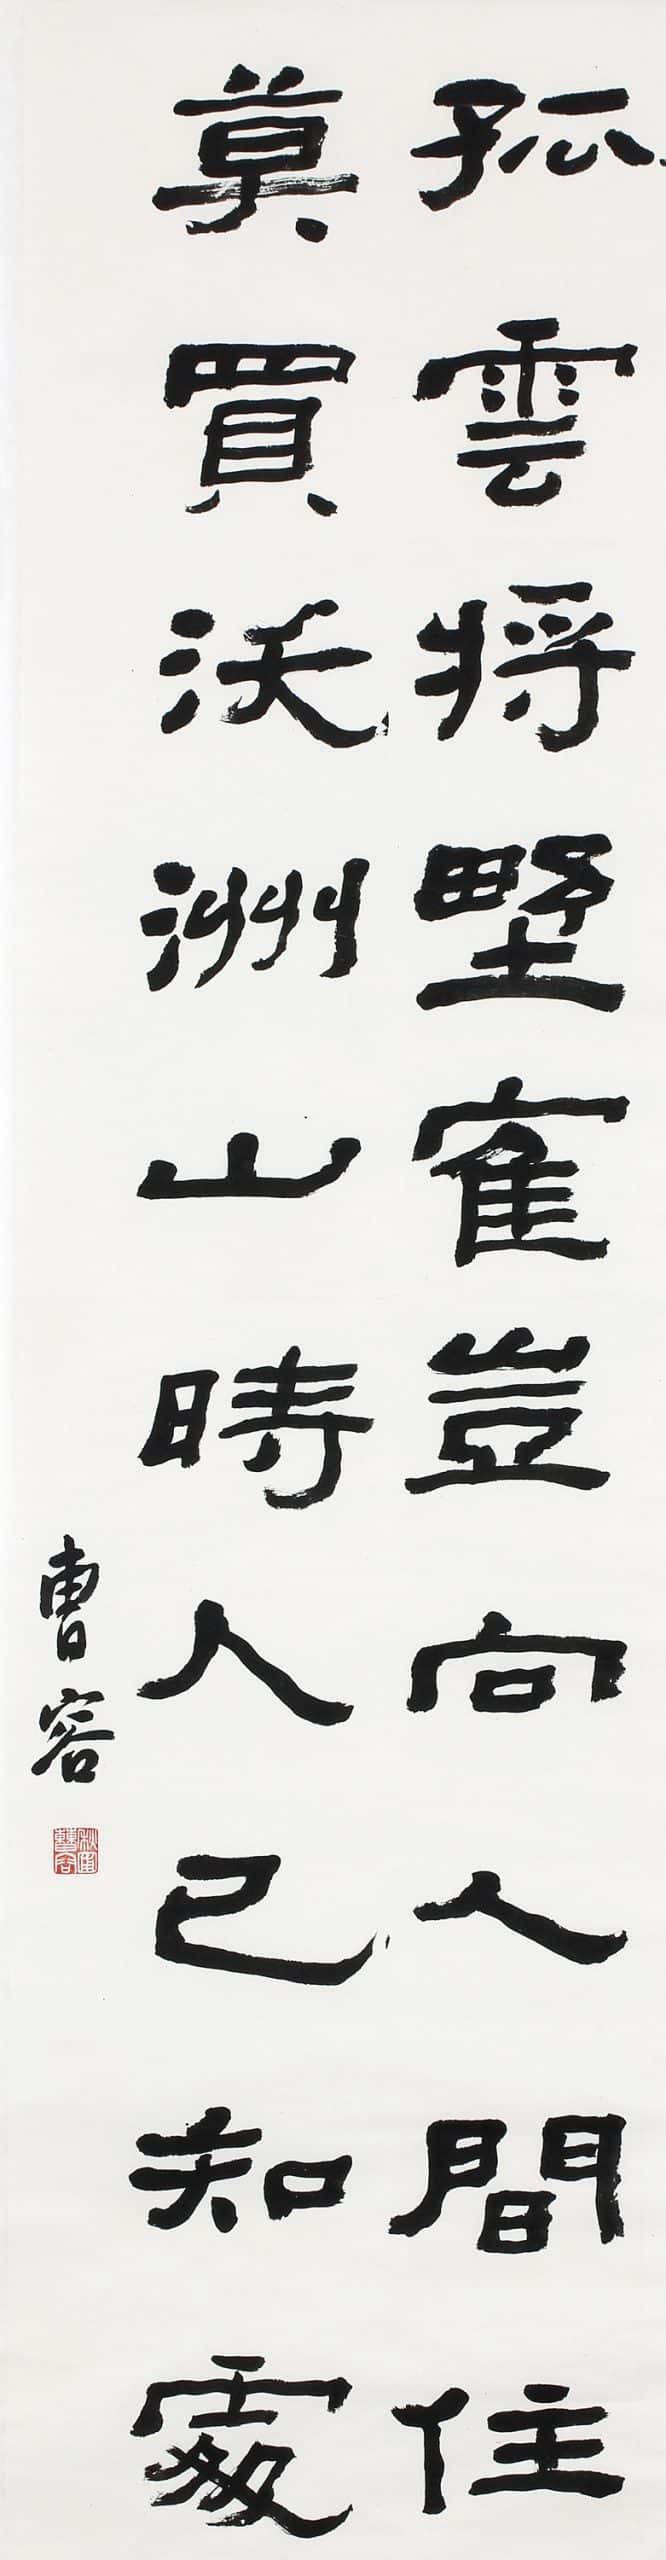 孤雲將野寉豈向人間住
莫買沃洲山時人已知處
曹容
秋圃
曹容